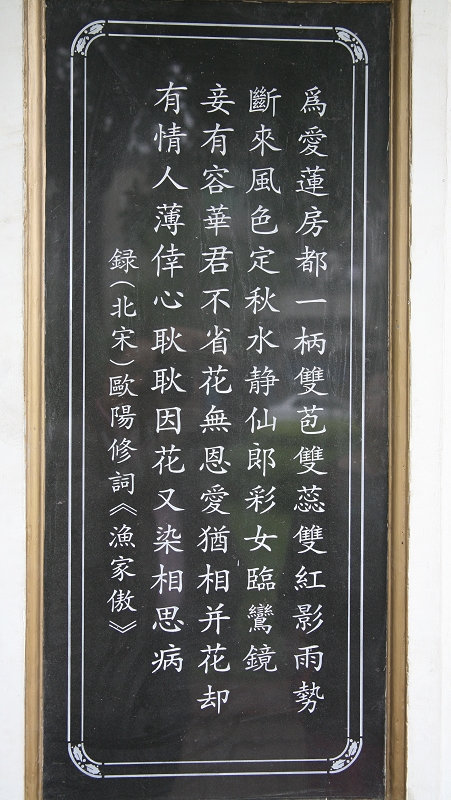 爲愛蓮房都一柄雙苞雙蕊雙紅影雨勢
斷來風色定秋水静仙郎彩女臨鸞鏡
妾有容華君不省花無恩愛猶相并花却
有情人薄倖心耿耿因花又染相思病
録(北宋)歐陽修詞《漁家傲》